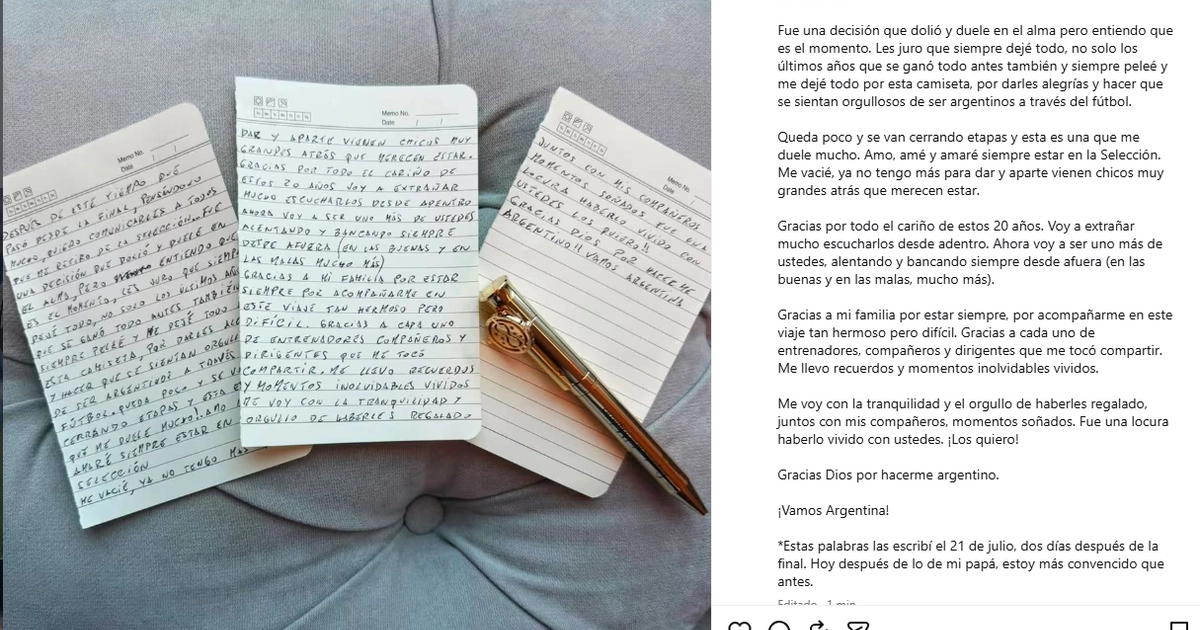 Memo No.
Date / /
DESPUÉS DE ESTE TIEMPO QUE
PASÓ DESDE LA FINAL, PENSÁNDOLO
MUCHO, QUIERO COMUNICARLES A TODOS
QUE ME RETIRO DE LA SELECCIÓN. FUE
UNA DECISIÓN QUE DOLIÓ Y DUELE EN
EL ALMA, PERO ENTIENDO QUE
ES EL MOMENTO, LES JURO QUE SIEMP
DEJÉ TODO, NO SOLO LOS ÚLTIMOS AÑOS
QUE SE GANÓ TODO ANTES TAMBIÉN
SIEMPRE PELEÉ Y ME DEJÉ TODO
ESTA CAMISETA, POR DARLES ALE
Y HACER QUE SE SIENTAN ORGULL
DE SER ARGENTINOS A TRAVÉS
FÚTBOL. QUEDA POCO Y SE V
CERRANDO ETAPAS Y ESTA E
QUE ME DUELE MUCHO!. AMO
AMARÉ SIEMPRE ESTAR EN
SELECCIÓN
ME VACIÉ, YA NO TENGO MÁS
Memo No.
Date / /
DAR Y APARTE VIENEN CHICOS MUY
GRANDES ATRÁS QUE MERECEN ESTAR.
GRACIAS POR TODO EL CARIÑO DE
ESTOS 20 AÑOS VOY A EXTRAÑAR
MUCHO ESCUCHARLOS DESDE ADENTRO
AHORA VOY A SER UNO MÁS DE USTEDES
ALENTANDO Y BANCANDO SIEMPRE
DESDE AFUERA (EN LAS BUENAS Y EN
LAS MALAS MUCHO MÁS)
GRACIAS A MI FAMILIA POR ESTAR
SIEMPRE POR ACOMPAÑARME EN
ESTE VIAJE TAN HERMOSO PERO
DIFÍCIL. GRACIAS A CADA UNO
DE ENTRENADORES COMPAÑEROS Y
DIRIGENTES QUE ME TOCÓ
COMPARTIR. ME LLEVO RECUERDOS
Y MOMENTOS INOLVIDABLES VIVIDOS
ME VOY CON LA TRANQUILIDAD Y
ORGULLO DE HABERLES REGALADO
Memo No.
Date / /
JUNTOS CON MIS COMPAÑEROS
MOMENTOS SOÑADOS. FUE UNA
LOCURA HABERLO VIVIDO CON
USTEDES LOS QUIERO!!
GRACIAS DIOS POR HACERME
ARGENTINO!! VAMOS ARGENTINA
Fue una decisión que dolió y duele en el alma pero entiendo que
es el momento. Les juro que siempre dejé todo, no solo los
últimos años que se ganó todo antes también y siempre peleé y
me dejé todo por esta camiseta, por darles alegrías y hacer que
se sientan orgullosos de ser argentinos a través del fútbol.
Queda poco y se van cerrando etapas y esta es una que me
duele mucho. Amo, amé y amaré siempre estar en la Selección.
Me vacié, ya no tengo más para dar y aparte vienen chicos muy
grandes atrás que merecen estar.
Gracias por todo el cariño de estos 20 años. Voy a extrañar
mucho escucharlos desde adentro. Ahora voy a ser uno más de
ustedes, alentando y bancando siempre desde afuera (en las
buenas y en las malas, mucho más).
Gracias a mi familia por estar siempre, por acompañarme en este
viaje tan hermoso pero difícil. Gracias a cada uno de
entrenadores, compañeros y dirigentes que me tocó compartir.
Me llevo recuerdos y momentos inolvidables vividos.
Me voy con la tranquilidad y el orgullo de haberles regalado,
juntos con mis compañeros, momentos soñados. Fue una locura
haberlo vivido con ustedes. ¡Los quiero!
Gracias Dios por hacerme argentino.
¡Vamos Argentina!
*Estas palabras las escribí el 21 de julio, dos días después de la
final. Hoy después de lo de mi papá, estoy más convencido que
antes.
Editado · 1 min